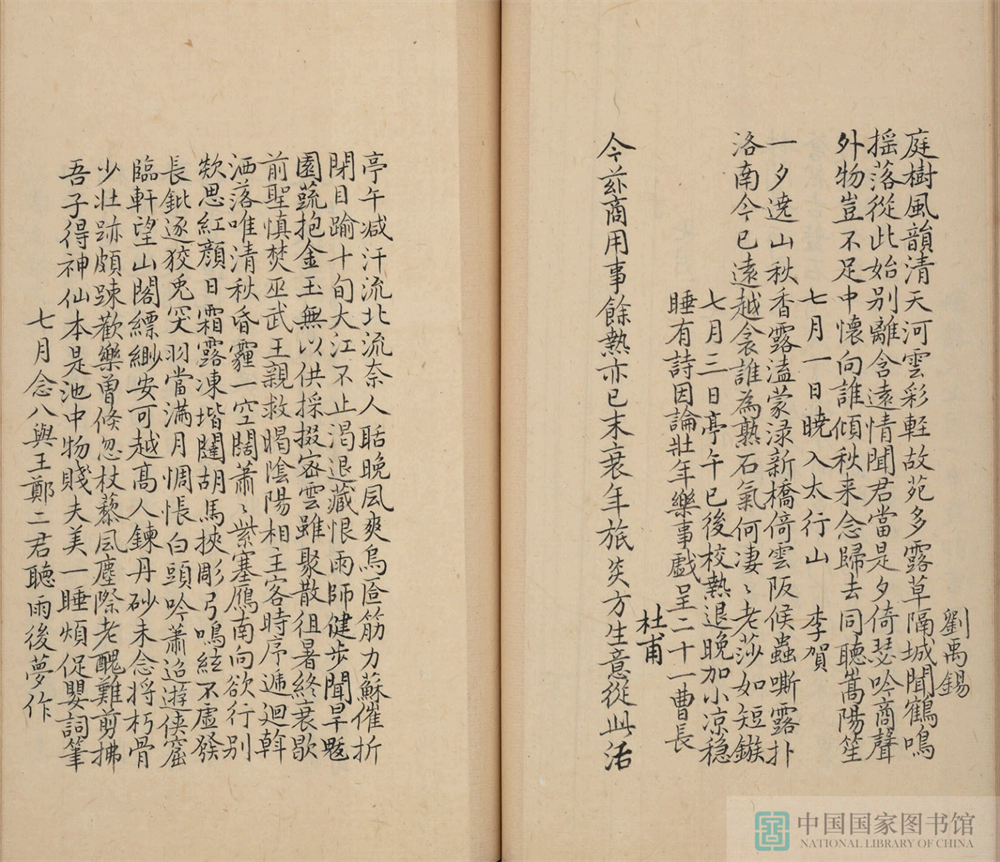 劉禹錫
庭樹風韻清天河雲彩輕故苑多露草隔城聞鶴鳴
搖落從此始别離含遠情聞君當是夕倚瑟吟商聲
外物豈不足中懷向誰傾秋来念歸去同聽嵩陽笙
七月一日曉入太行山 李賀
一夕遶山秋香露溘蒙淥新橋倚雲阪候蟲嘶露扑
洛南今已遠越衾誰為熟石氣何凄〻老莎如短鏃
七月三日亭午已後校熱退晚加小凉穩
睡有詩因論壯年樂事戲呈二十一曹長
杜甫
今茲商用事餘熱亦已末衰年旅炎方生意從此活
亭午减汗流北流奈人聒晚風爽烏匼筋力蘇催折
閉目踰十旬大江不止渴退藏恨雨師健步聞旱魃
園蔬抱金玉無以供採掇宻雲雖聚散徂暑終衰歇
前聖慎焚巫武王親救暍陰陽相主客時序遞迴斡
洒落唯清秋昏霾一空闊蕭〻紫塞鴈南向欲行别
欻思紅顏日霜露凍堦闥胡馬挾彫弓鳴絃不虛發
長鈚逐狡兎突羽當滿月惆悵白頭吟蕭迢遊俠窟
臨軒望山閣縹緲安可越高人鍊丹砂未念將朽骨
少壯跡頗踈歡樂曽倏忽杖藜風塵際老醜難剪拂
吾子得神仙本是池中物賤夫美一睡煩促嬰詞筆
七月念八與王鄭二君聽雨後夢作
中国国家图书馆
NATIONAL LIBRARY OF CHINA